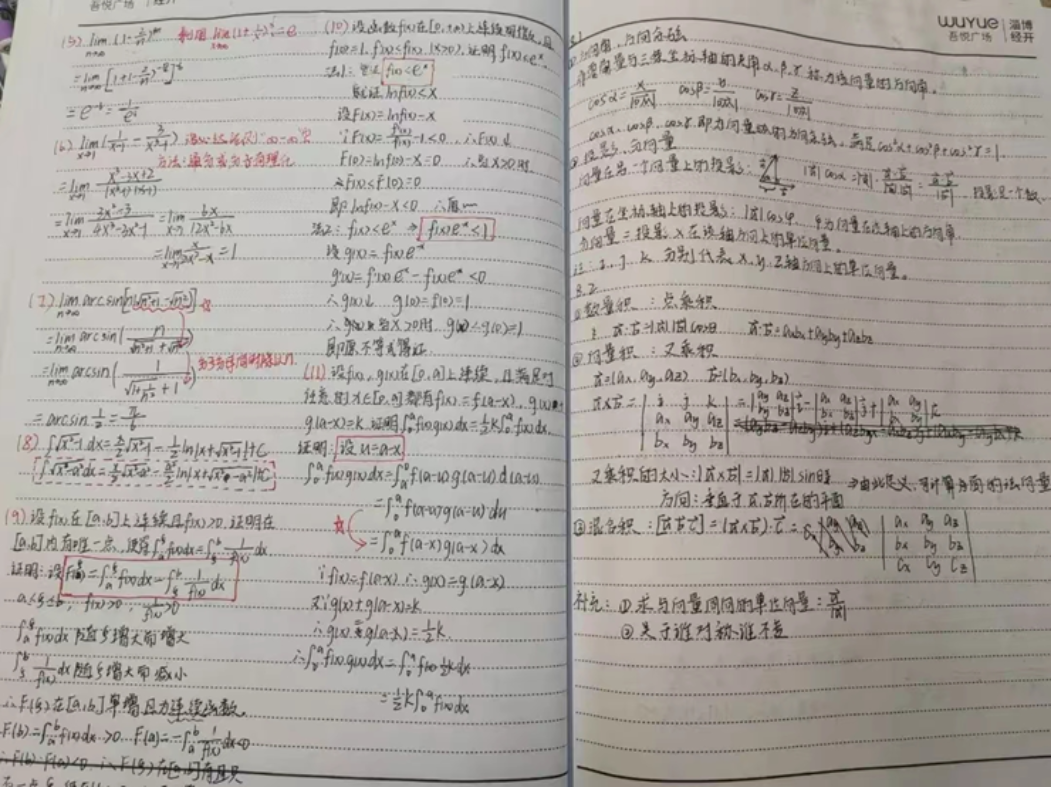 吾悦广场 经开
(5) lim n→∞ (1-2/n)^3n 利用 lim x→∞ (1+1/x)^x=e
=e^-6=1/e^6
(6) lim x→1 (1/(x-1) - 3/(x³-1)) "∞-∞"型
方法:通分或分子有理化
=lim x→1
=lim x→1 =lim x→1 6x/(12x²-6x)
=lim x→1 x/(2x²-x)=1
(7) lim n→∞ arcsin[n(√(n²+1)-√n²)] ☆
=lim n→∞ arcsin( n/(√(n²+1)+√n²) )
=lim n→∞ arcsin( 1/(√(1+1/n²)+1) ) 分子分母同时除以n
=arcsin 1/2=π/6
(8) ∫√(x²-1)dx=x/2√(x²-1)-1/2 ln|x+√(x²-1)|+C
(9) 设f(x)在[a,b]上连续且f(x)>0,证明在
[a,b]内有唯一点,使得∫a^ξ f(x)dx=∫ξ^b 1/f(x) dx
证明:设F(ξ)=∫a^ξ f(x)dx-∫ξ^b 1/f(x) dx
a≤ξ≤b, f(x)>0, 1/f(x)>0
∫a^ξ f(x)dx 随ξ增大而增大
∫ξ^b 1/f(x) dx 随ξ增大而减小
∴F(ξ)在[a,b]单增且为连续函数.
F(b)=∫a^b f(x)dx>0 F(a)=-∫a^b 1/f(x) dx<0
∴F(b)·F(a)<0 ∴F(ξ)在[a,b]有且只
(10) 设函数f(x)在[0,+∞)上连续
f(0)=1, f'(x)<f(x) (x>0), 证明f(x)<e^x.
法1: f(x)<e^x
即证lnf(x)<x
设F(x)=lnf(x)-x
∵F'(x)=f'(x)/f(x)-1<0 ∴F(x)↓
F(0)=lnf(0)-x=0 ∴当x>0时
F(x)<F(0)=0
即lnf(x)-x<0
法2: f(x)<e^x ⇒ f(x)e^-x<1
设g(x)=f(x)e^-x
g'(x)=f'(x)e^-x-f(x)e^-x<0
∴g(x)↓ g(0)=f(0)=1
∴g(x)当x>0时 g(x)<g(0)=1
即原不等式得证
(11) 设f(x),g(x)在[0,a]上连续,且满足对
任意的x∈[0,a]都有f(x)=f(a-x),g(x)+
g(a-x)=k.证明∫0^a f(x)g(x)dx=1/2k∫0^a f(x)dx.
证明:设u=a-x
∫0^a f(x)g(x)dx=∫a^0 f(a-u)g(a-u)d(a-u)
=∫0^a f(a-u)g(a-u)du
☆ =∫0^a f(a-x)g(a-x)dx
∵f(x)=f(a-x) ∴g(x)=g(a-x)
又∵g(x)+g(a-x)=k
∴g(x)=g(a-x)=1/2k
∴∫0^a f(x)g(x)dx=∫0^a f(x)1/2k dx
=1/2k∫0^a f(x)dx
WUYUE 吾悦广场 淄博 经开
①方向角,方向余弦
非零向量与三条坐标轴的夹角α,β,γ称为该向量的方向角.
cosα=x/|OM| cosβ=y/|OM| cosγ=z/|OM|
cosα,cosβ,cosγ即为向量的方向余弦,满足cos²α+cos²β+cos²γ=1.
②投影,分向量
向量在另一个向量上的投影: 投影是一个数.
向量在坐标轴上的投影:|a|cosφ. φ为向量在该轴上的方向角.
分向量=投影×在该轴方向上的单位向量.
注:i,j,k分别代表x,y,z轴方向上的单位向量.
8.2
①数量积:点乘积
a·b=|a||b|cosθ a·b=axbx+ayby+azbz
②向量积:叉乘积
a=(ax,ay,az) b=(bx,by,bz)
a×b=|i j k|
|ax ay az|
|bx by bz|
叉乘积的大小:|a×b|=|a||b|sinθ ⇒由此定义,可计算方面的法向量
方向:垂直于a,b所在的平面
③混合积:[a b c]=(a×b)·c=
|ax ay az|
|bx by bz|
|cx cy cz|
补充:①求与向量同向的单位向量:a/|a|
②关于谁对称谁不变